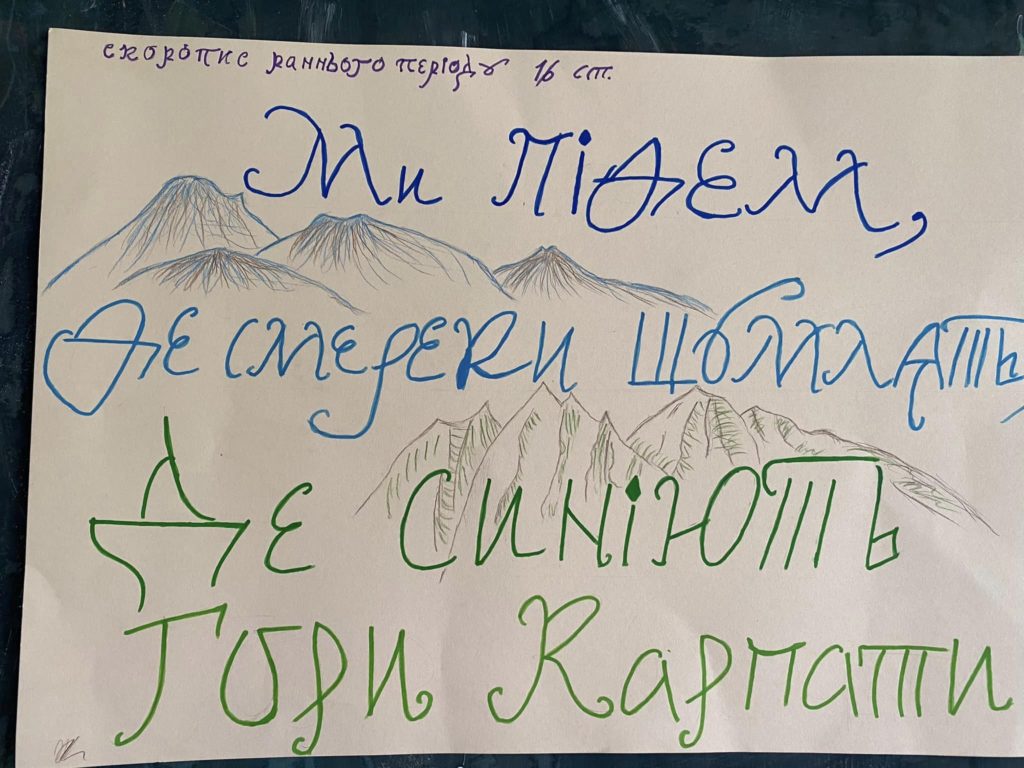 скоропис раннього періоду 16 ст.
Ми підем,
де смереки шумлять,
Де синіють
Гори Карпати